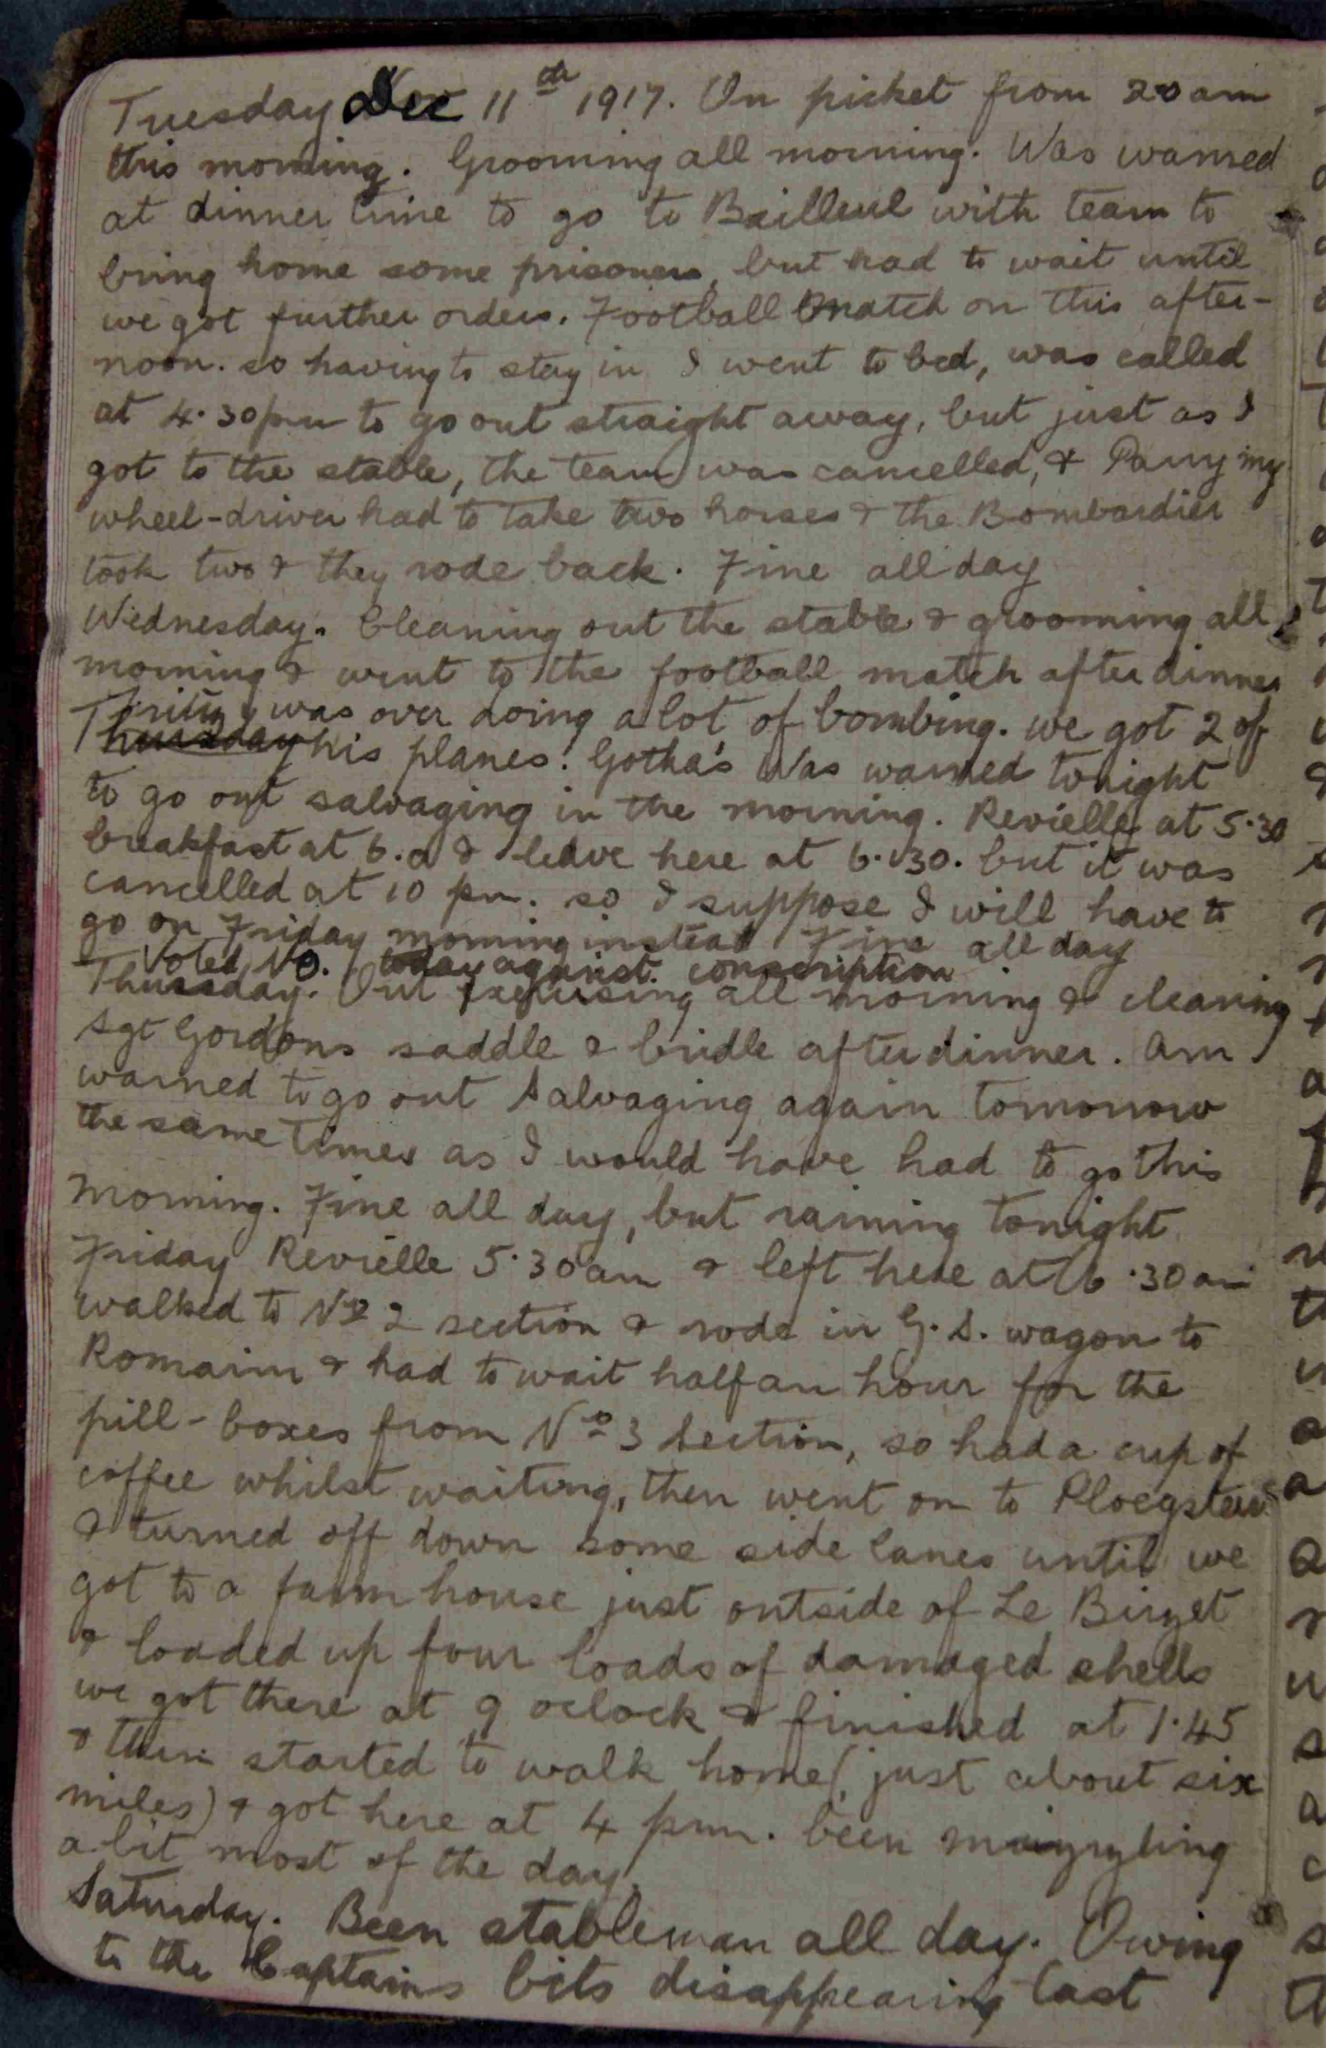 Tuesday Dec 11th 1917. On picket from 2 am
this morning. Grooming all morning. Was warned
at dinner time to go to Bailleul with team to
bring home some prisoners, but had to wait until
we got further orders. Football match on this after-
noon. so having to stay in I went to bed, was called
at 4.30 pm to go out straight away, but just as I
got to the stable, the team was cancelled, & Parry my
wheel-driver had to take two horses & the Bombardier
took two & they rode back. Fine all day
Wednesday. Cleaning out the stable & grooming all
morning & went to the football match after dinner
Fritz was over doing a lot of bombing. we got 2 of
Thursday his planes. Gotha's Was warned tonight
to go out salvaging in the morning. Revielle at 5.30
breakfast at 6.0 & leave here at 6.30. but it was
cancelled at 10 pm. so I suppose I will have to
go on Friday morning instead Fine all day
Voted NO. today against conscription
Thursday. Out exercising all morning & cleaning
Sgt Gordons saddle & bridle after dinner. Am
warned to go out salvaging again tomorrow
the same times as I would have had to go this
morning. Fine all day, but raining tonight
Friday Revielle 5.30 am & left here at 6.30 am
walked to No 2 section & rode in G.S. wagon to
Romarin & had to wait half an hour for the
pill-boxes from No 3 Section, so had a cup of
coffee whilst waiting, then went on to Ploegsteert
& turned off down some side lanes until we
got to a farm house just outside of Le Bizet
& loaded up four loads of damaged shells
we got there at 9 oclock & finished at 1.45
& then started to walk home (just about six
miles) & got here at 4 pm. been
a bit most of the day.
Saturday. Been stableman all day. Owing
to the Captains bits disappearing last